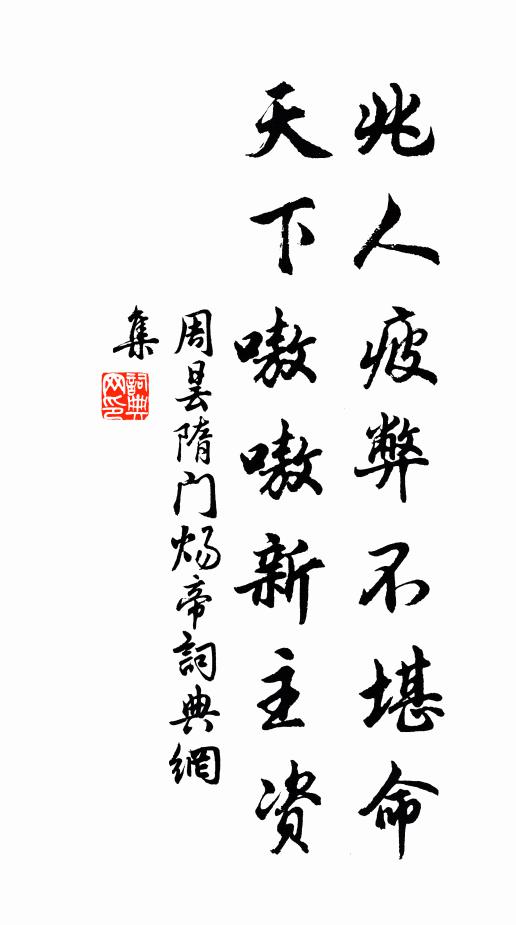 兆人疲弊不堪命
天下嗷嗷新主资
周昙隋门炀帝詞典網
集
詞典
网印